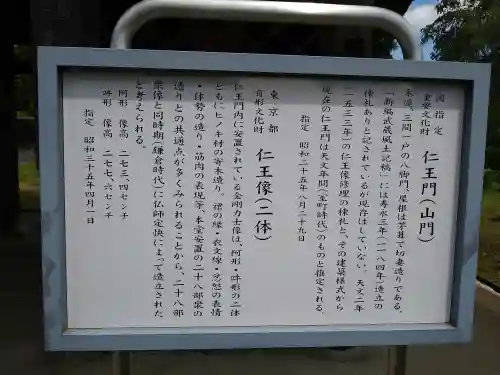 国指定
重要文化財 仁王門(山門)
本造、三間一戸の八脚門、屋根は茅葺で切妻造りである。
「新編武蔵風土記稿」には寿永三年(一一八四年)造立の
棟札ありと記されているが現存はしていない。天文二年
(一五三三年)の仁王像修理の棟札と、その建築様式から
現在の仁王門は天文年間(室町時代)のものと推定される。
指定 昭和二十五年八月二十九日
東京都
有形文化財 仁王像(二体)
仁王門内に安置されている金剛力士像は、阿形・吽形の二体
ともにヒノキ材の寄木造り。裙の縁・衣文線・忿怒の表情
・体勢の造り・筋肉の表現等、本堂安置の二十八部衆の
造りとの共通点が多くみられることから、二十八部
衆像と同時期(鎌倉時代)に仏師定快によって造立された
と考えられる。
阿形 像高 二七三、四センチ
吽形 像高 二七七、六センチ
指定 昭和三十五年四月一日